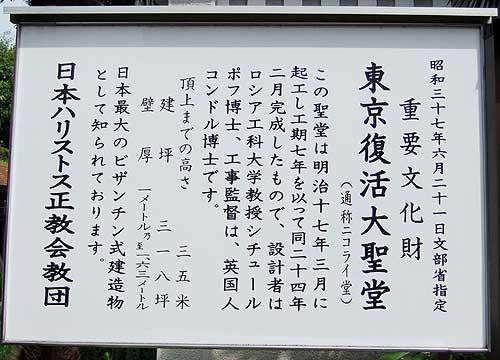 昭和三十七年六月二十一日文部省指定
重要文化財
東京復活大聖堂
（通称ニコライ堂）
この聖堂は明治十七年三月に
起工し工期七年を以って同二十四年
二月完成したもので、設計者は
ロシア工科大学教授シチュール
ポフ博士、工事監督は、英国人
コンドル博士です。
頂上までの高さ 三五米
建坪 三一八坪
壁厚 一メートル乃至一・六三メートル
日本最大のビザンチン式建造物
として知られております。
日本ハリストス正教会教団